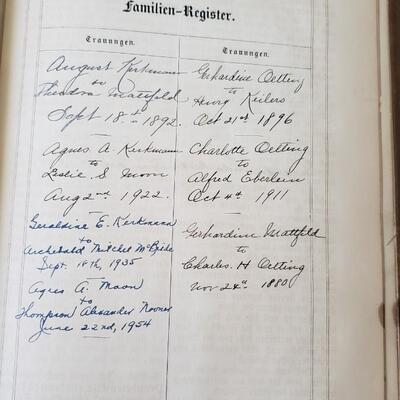 Familien-Register.
Trauungen.
August Kirkmann
to
Theodora Mattfeld
Sept 18.th 1892.
Agnes A Kirkmann
to
Leslie. S Moon
Aug 2nd 1922.
Geraldine E. Kirkmann
to
Archibald Mitchel McBrike
Sept. 18th, 1935
Agnes A. Moon
to
Thompson Alexander Rooner
June 22nd, 1954
Trauungen.
Gerhardine Oetting
to
Hurg Kielers
Oct 21st 1896
Charlotte Oetting
to
Alfred Eberlein
Oct 4th 1911
Gerhardine Mattfeld
to
Charles. H Oetting
Nov 24th 1880